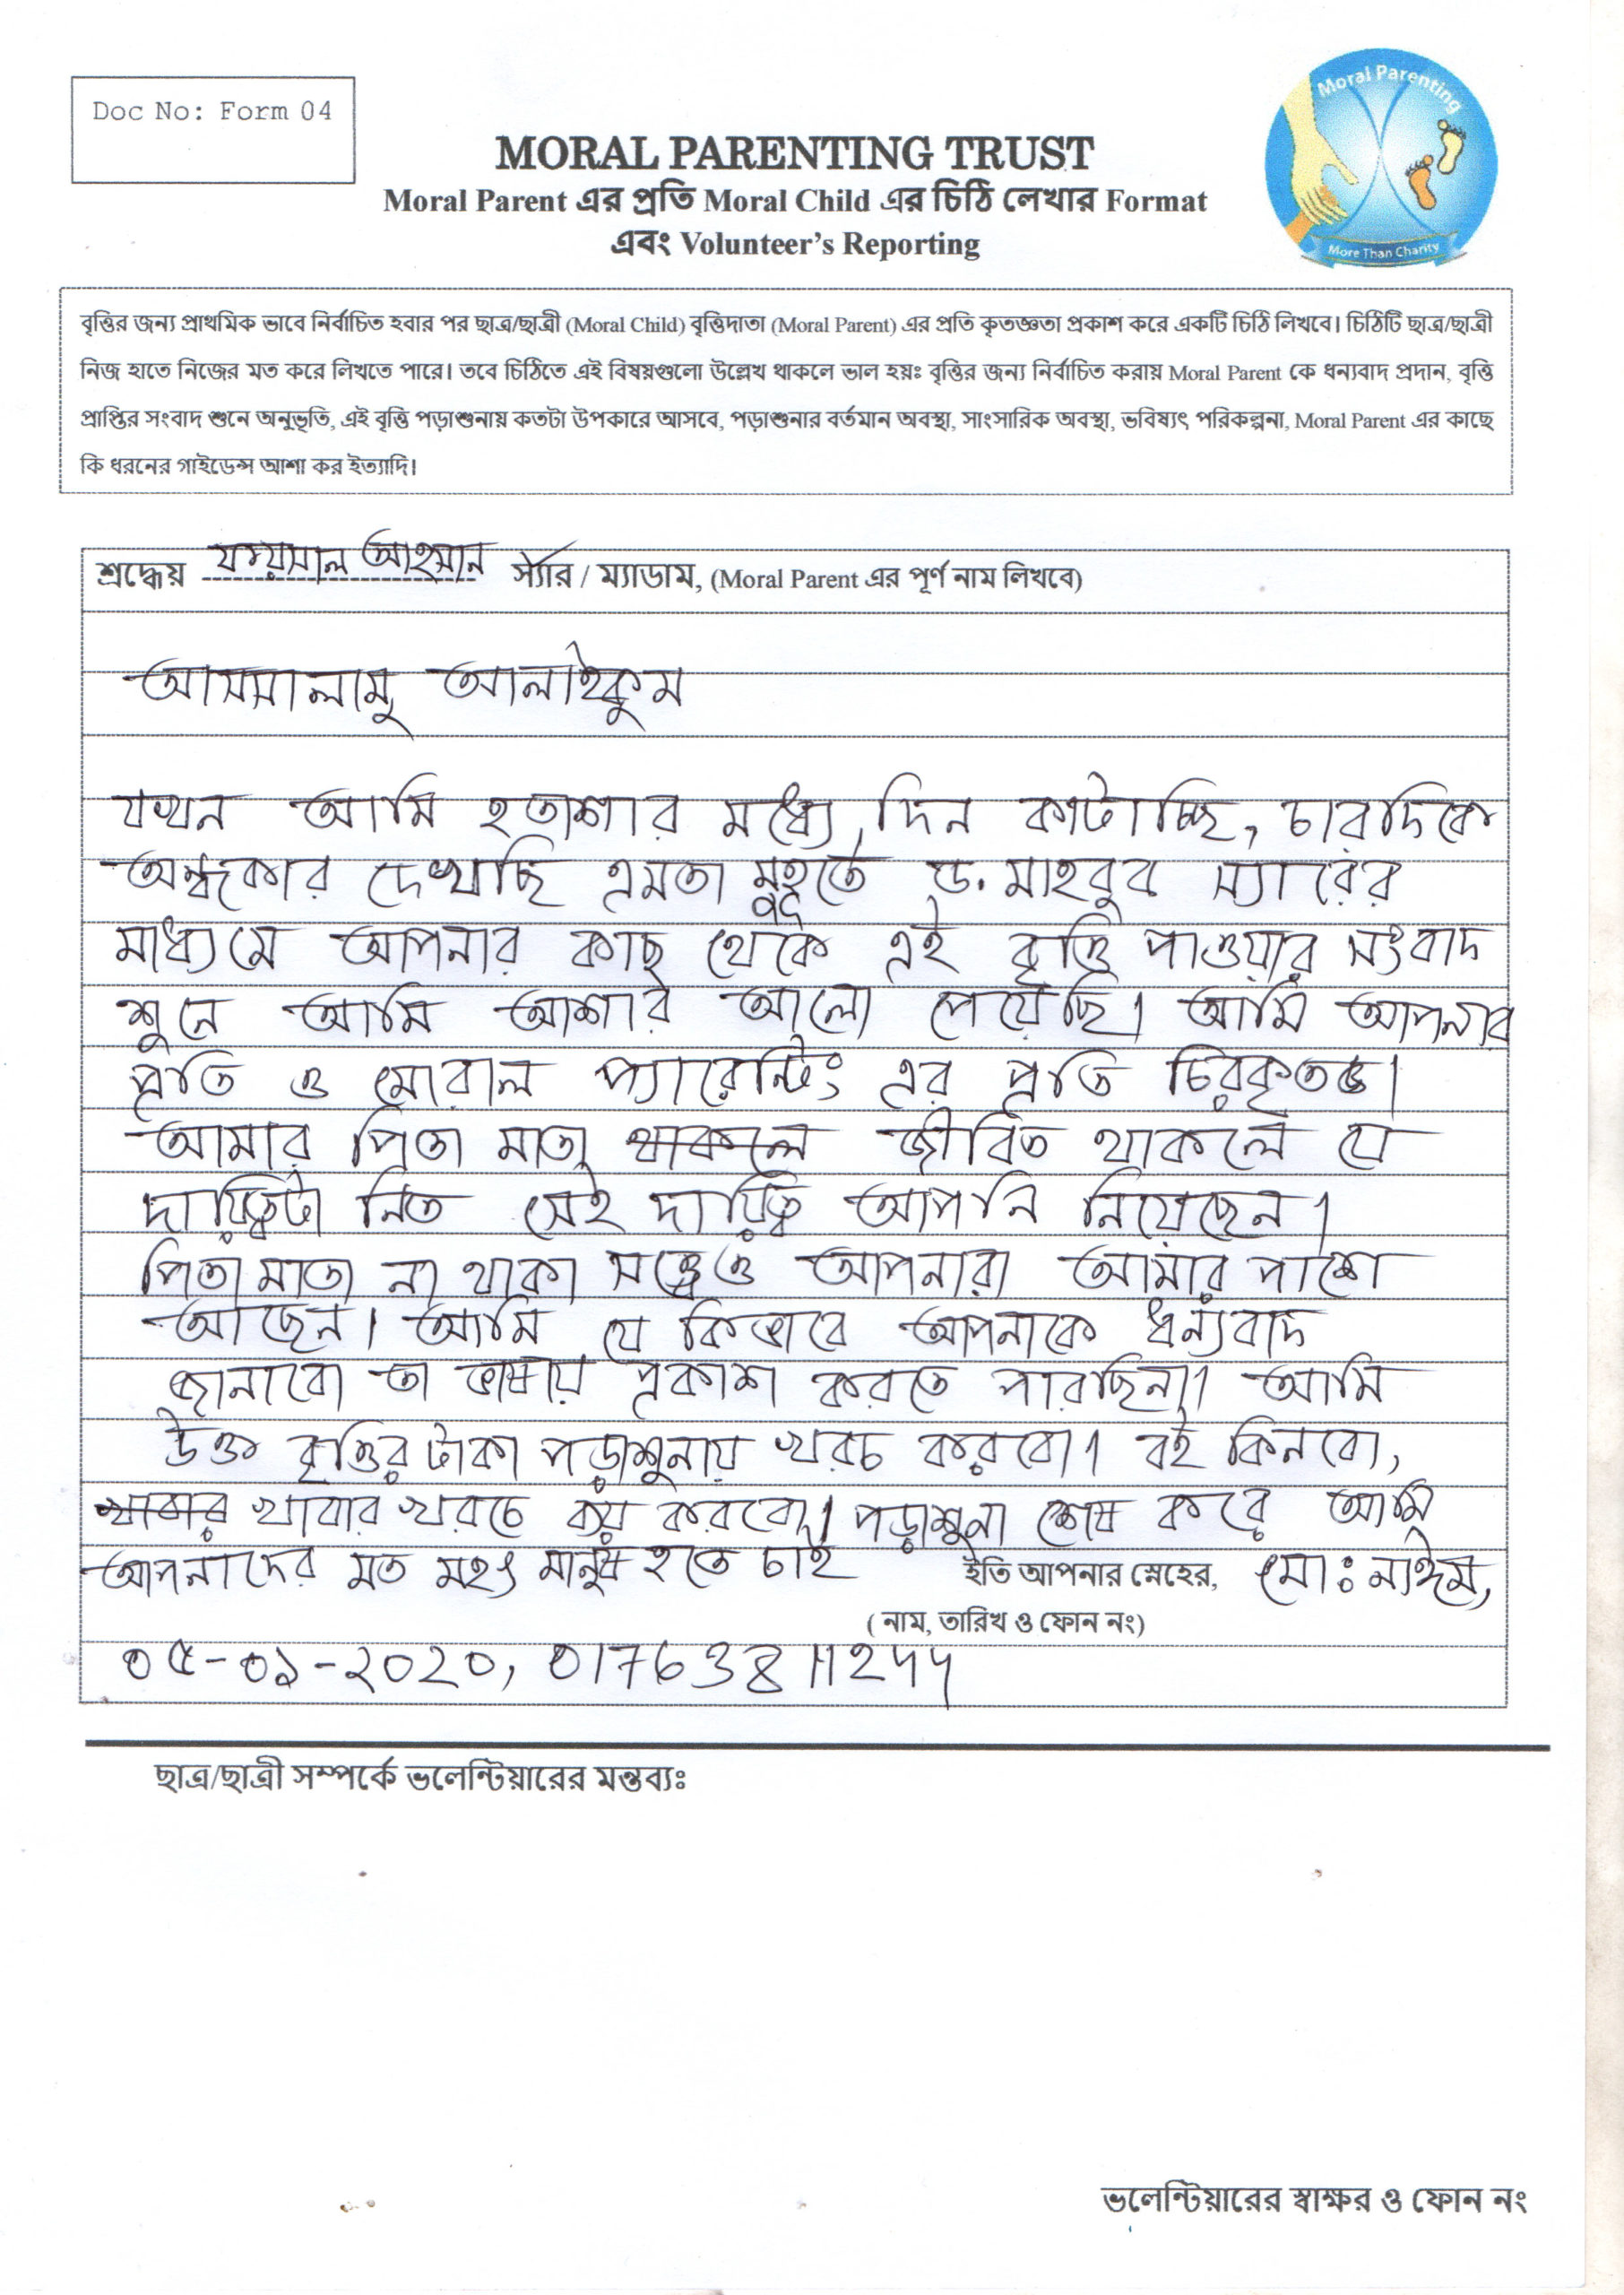 Doc No: Form 04
Moral Parenting
More Than Charity
MORAL PARENTING TRUST
Moral Parent এর প্রতি Moral Child এর চিঠি লেখার Format
এবং Volunteer’s Reporting
বৃত্তির জন্য প্রাথমিক ভাবে নির্বাচিত হবার পর ছাত্র/ছাত্রী (Moral Child) বৃত্তিদাতা (Moral Parent) এর প্রতি কৃতজ্ঞতা প্রকাশ করে একটি চিঠি লিখবে। চিঠিটি ছাত্র/ছাত্রী
নিজ হাতে নিজের মত করে লিখতে পারে। তবে চিঠিতে এই বিষয়গুলো উল্লেখ থাকলে ভাল হয়ঃ বৃত্তির জন্য নির্বাচিত করায় Moral Parent কে ধন্যবাদ প্রদান, বৃত্তি
প্রাপ্তির সংবাদ শুনে অনুভূতি, এই বৃত্তি পড়াশুনায় কতটা উপকারে আসবে, পড়াশুনার বর্তমান অবস্থা, সাংসারিক অবস্থা, ভবিষ্যৎ পরিকল্পনা, Moral Parent এর কাছে
কি ধরনের গাইডেন্স আশা কর ইত্যাদি।
শ্রদ্ধেয় ফয়সাল আহসান স্যার / ম্যাডাম, (Moral Parent এর পূর্ণ নাম লিখবে)
আসসালামু আলাইকুম
যখন আমি হতাশার মধ্যে দিন কাটাচ্ছি, চারদিকে
অন্ধকার দেখছি এমতা মুহূর্তে ড. মাহবুব স্যারের
মাধ্যমে আপনার কাছ থেকে এই বৃত্তি পাওয়ার সংবাদ
শুনে আমি আশার আলো পেয়েছি। আমি আপনার
প্রতি ও মোরাল প্যারেন্টিং এর প্রতি চিরকৃতজ্ঞ।
আমার পিতা মাতা থাকলে জীবিত থাকলে যে
দায়িত্বটা নিত সেই দায়িত্ব আপনি নিয়েছেন।
পিতা মাতা না থাকা সত্ত্বেও আপনারা আমার পাশে
আছেন। আমি যে কিভাবে আপনাকে ধন্যবাদ
জানাবো তা ভাষায় প্রকাশ করতে পারছিনা। আমি
উক্ত বৃত্তির টাকা পড়াশুনায় খরচ করবো। বই কিনবো,
খাবার খাবার খরচে ব্যয় করবো। পড়াশুনা শেষ করে আমি
আপনাদের মত মহৎ মানুষ হতে চাই ইতি আপনার স্নেহের, মোঃ নাঈম,
( নাম, তারিখ ও ফোন নং)
০৫-০১-২০২০, 01763811255
ছাত্র/ছাত্রী সম্পর্কে ভলেন্টিয়ারের মন্তব্যঃ
ভলেন্টিয়ারের স্বাক্ষর ও ফোন নং